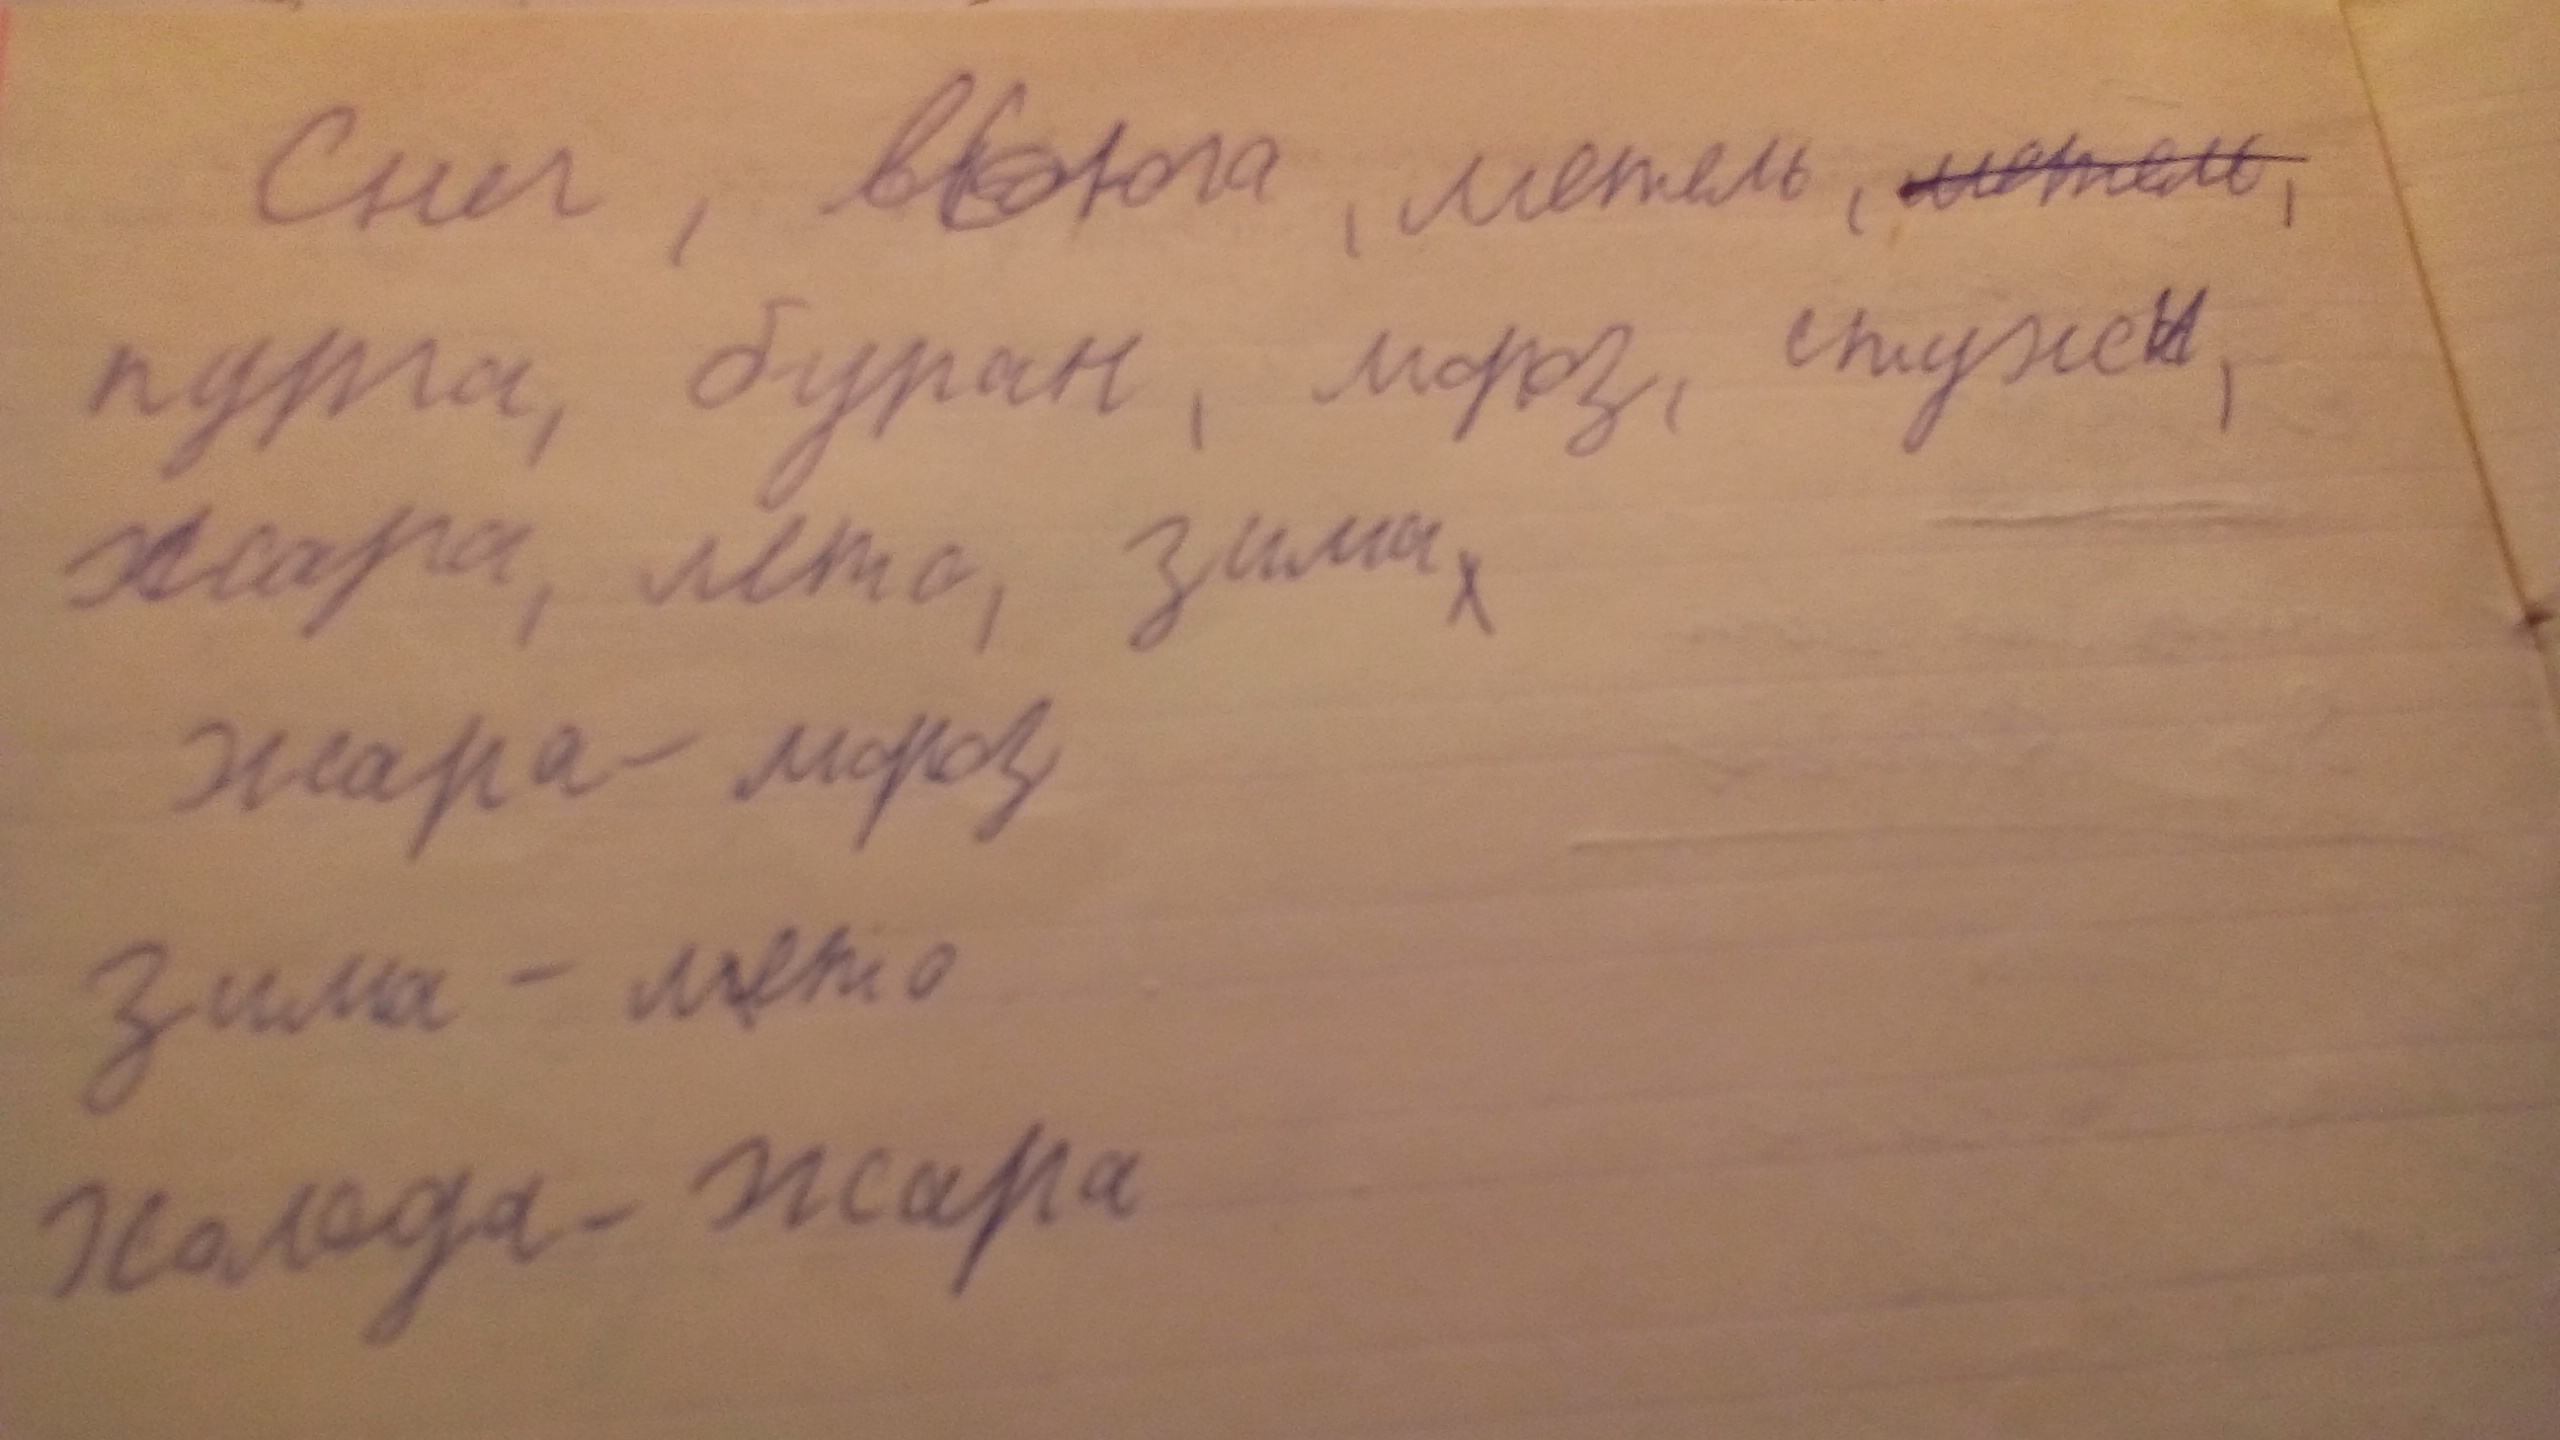 Снег, вьюга, метель, метель,
пурга, буран, мороз, стужи,
жара, лето, зима,
жара - мороз
зима - лето
халода - жара